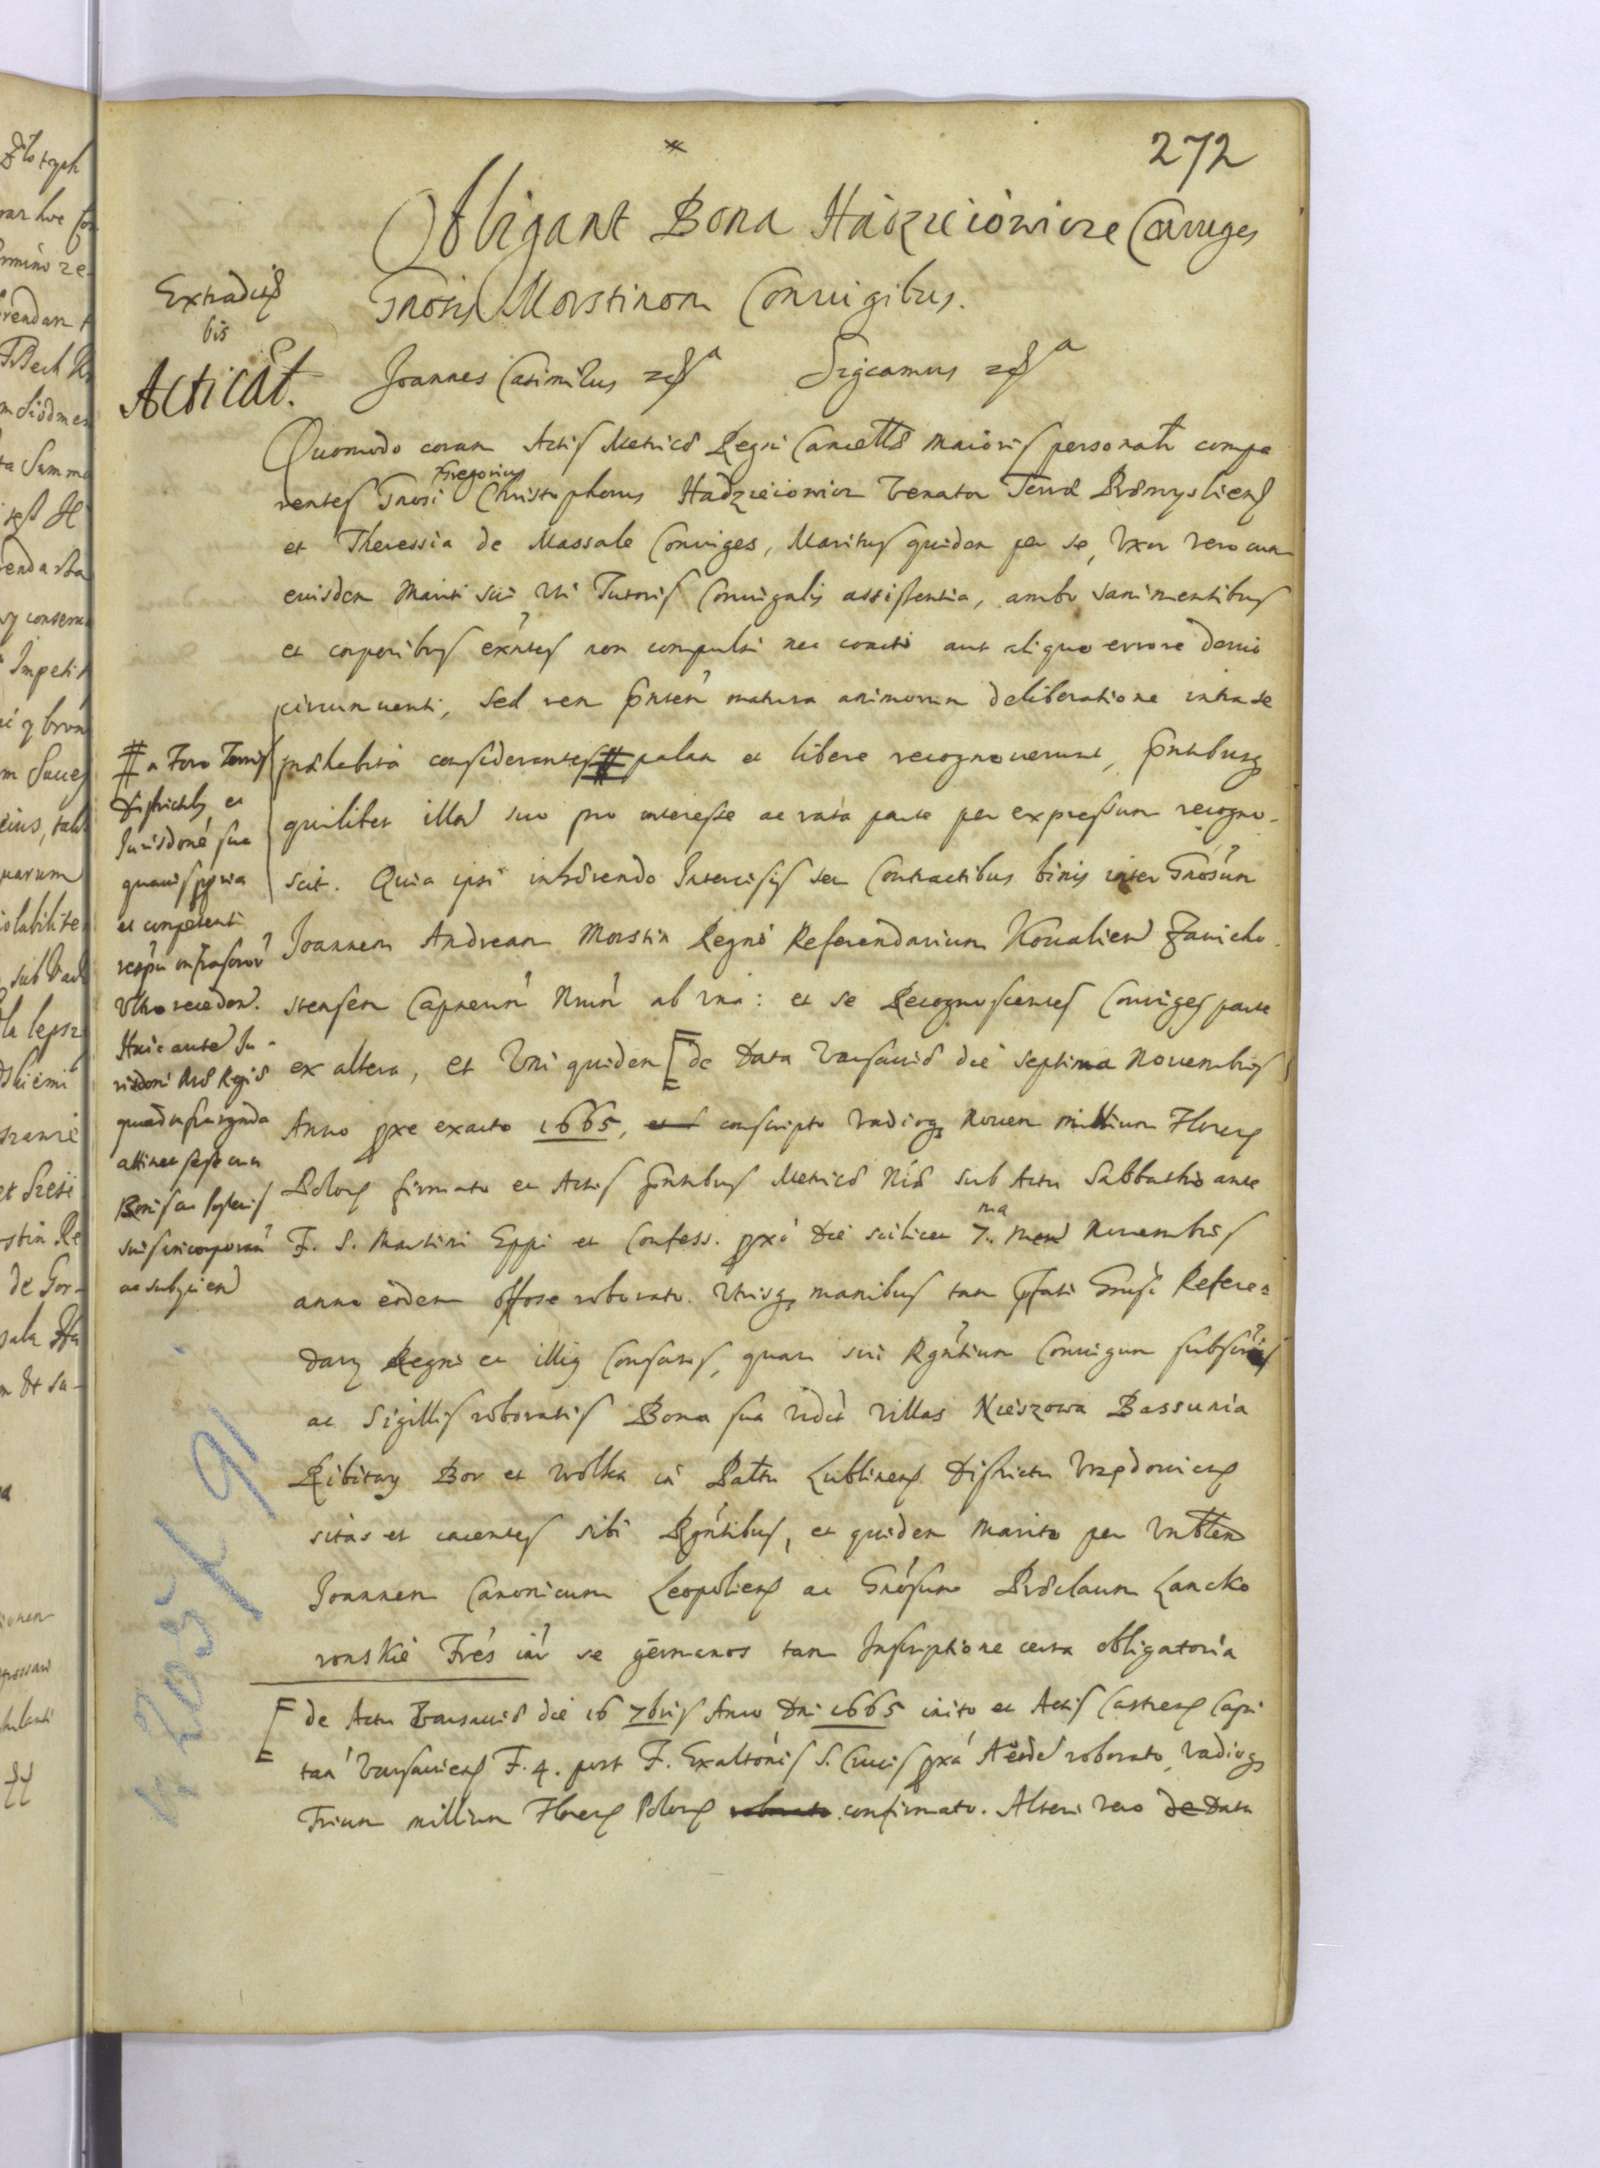 272
Obligant Bona Hadzieiowicze Coniuges
Gnosis Morstinom Coniugibus.
Extradit
bis
Acticat.
Joannes Casimirus Sigcamus
Quomodo coram Actis Metricæ Regni Cancell Maioris personatr compa
rentes Gnosi Gregorius Christophorus Hadzieiowicz Venator Terræ Præmysliens
et Theressia de Massale Coniuges, Maritus quidem per se, Uxor vero cum
euisdem Mariti sui uti Tutoris Coniugalis assistentia, ambo sani mentibus
et corporibus exntes non compulsi nec coacti aut aliquo errore devio
circumuenti, sed rem pnten matura animorum deliberatione intra se
præhabita considerantes # palam et libere recognouerunt, pntibusq
quilibet illor suo pro interesse ac rata parte per expressum recogno-
scit. Quia ipsi inhærendo Intercisis seu Contractibus binis inter Gnosum
Joannem Andream Morstin Regni Referendarium Koualien Zawicho-
stensem Capneum Nrum ab una: et se Recognoscentes Coniuges parte
ex altera, et Uni quidem [de Data Varsauiæ die septima Nouembris
Anno pxe exacto 1665, conscripto vadioq nouem millium Floren
Polon firmato et Actis pntibus Metricæ Nræ sub Actu Sabbatho ante
F. S. Martini Eppi et Confess. pxo die scilicet 7.ma Men Nouembris
anno eodem offose roborato. Utrisq manibus tam pfati Gnosi Referen
darij Regni et illig Consortis, quam sui Rgntium Coniugum subscriis
ac Sigillis roboratis Bona sua vidt villas Nieszowa Bassunia
Ribitwy Bor et Wolka in Pattu Lublinens Districtu Urzędowiens
sitas et iacentes sibi Rgntibus, et quidem Marito per Urblem
Joannem Canonicum Leopoliens ac Gnosum Præclaum Lancko
ronskie Fres inr se germanos tam Inscriptione certa obligatoria
[ de Actu Varsauiæ die 16 7bris Anno Dni 1665 inito et Actis Castren Capi
tan Varsauiens F. 4. post F. Exaltonis S. Crucis pxa A eode roborato, vadioq
Trium millium Floren Polon roborato confirmato. Alteri vero de Data
# a Foro Terris
Districtib et
Jurisdone sua
quauis ppria
et competenti
respu infrascror
Ultro receden.
Huic aute Ju-
risdoni Regis
quoad infra
attinet sese cum
Bonis ac posteris
suis incorporan
ac subijcien